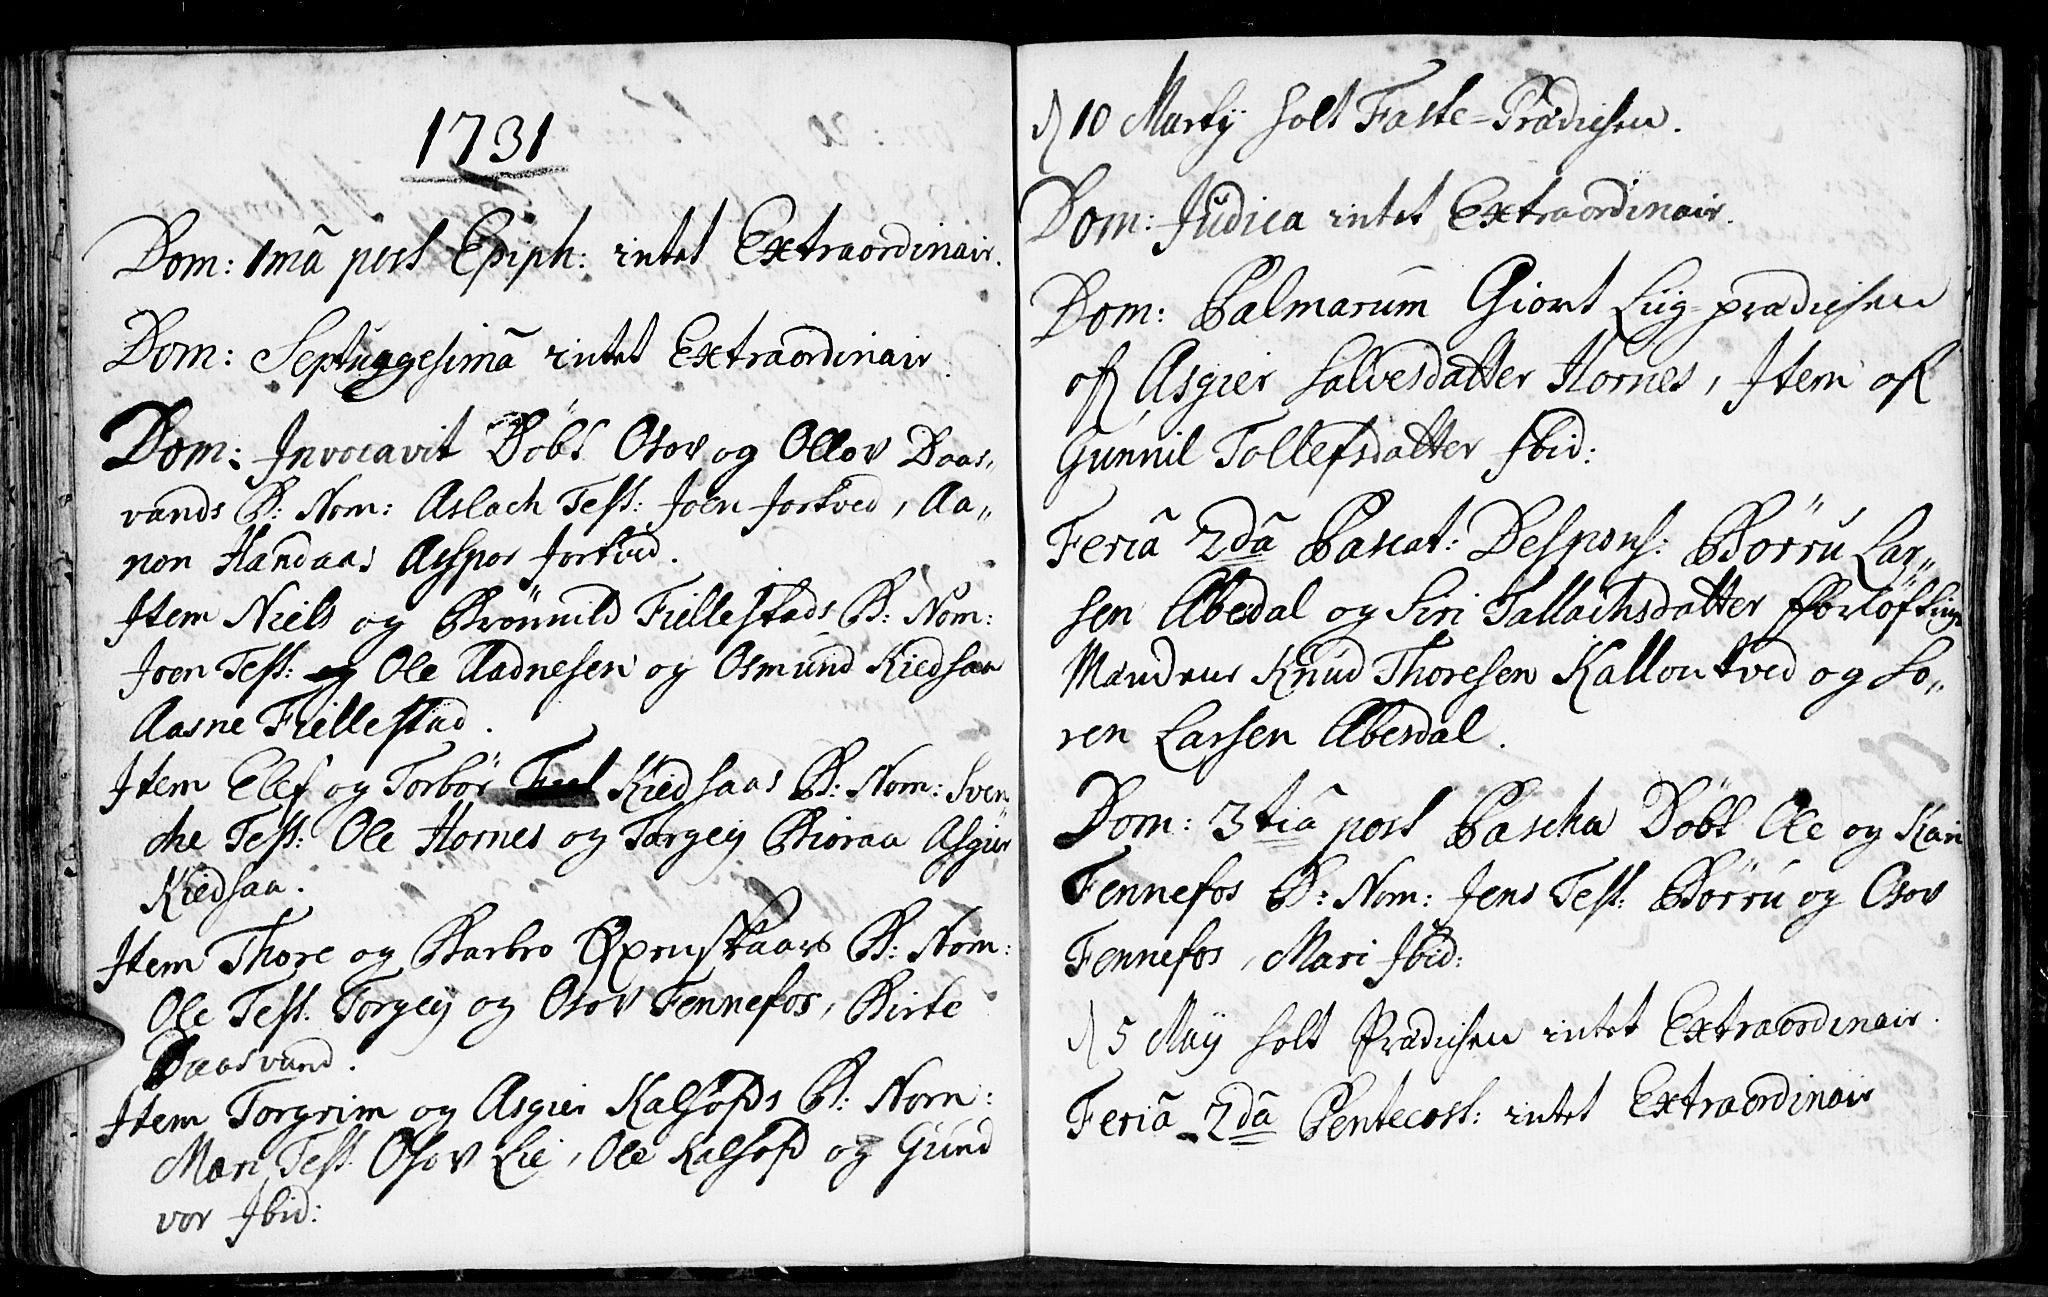 1731
Dom: 1mâ post Epiph: intet Extraordinair.
Dom: Septuagesimâ intet Extraordinair.
Dom: Invocavit Döbt Osov og Ollov Daas„
vands B: Nom: Aslach Test: Joen Jortved, Aa„
non Handaas Asspor Jortved.
Item Niels og Brönnild Fiellestads B: Nom:
Joen Test: og Ole Aadnesen og Osmund Kiedsaa
Aasne Fiellestad.
Item Elef og Torbör Kiedsaas B: Nom: Sven
che Test: Ole Hornes og Torgey Biöraa Asgier
Kiedsaa.
Item Thore og Barbro Øxenskaars B: Nom:
Ole Test: Torgey og Osov Fennefos, Birte
Daasvand.
Item Torgrim og Asgier Kalhofds B: Nom:
Mari Test: Osov Lie, Ole Kalhofd og Gund
vor Ibid:
d 10 Martij holt Faste-Prædichen.
Dom: Judica intet Extraordinair.
Dom: Palmarum Giort Liig-prædichen
of Asgier Salvesdatter Hornes, Item of
Gunnil Tollefsdatter Ibid:
Feriâ 2dâ Pascat: Despons: Börru Lar„
sen Abesdal og Siri Tallachsdatter Forlöftings
Mændene Knud Thoresen Kallontved og So„
ren Larsen Abesdal.
Dom: 3tiâ post Pascha Döbt Ole og Kari
Fennefos B: Nom: Jens Test: Börru og Osov
Fennefos, Mari Ibid:
d 5 May holt Prædichen intet Extraordinair.
Feriâ 2dâ Pentecost: intet Extraordinair